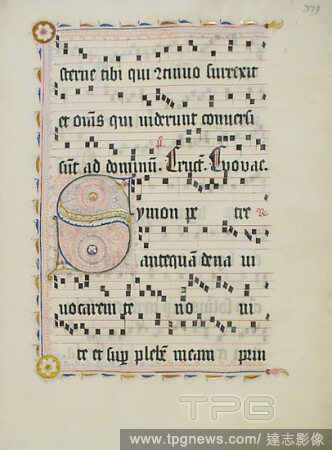 sterne tibi qui remuo surrexit
et om̄s qui uiderunt conuersi
sūt ad dominū. Cruct. Euouae.
Symon pe tre
antequā dena ui
uocarem te no ui
te et sup̄ plebē meam prin
TPG
www.tpgnews.com/達志影像